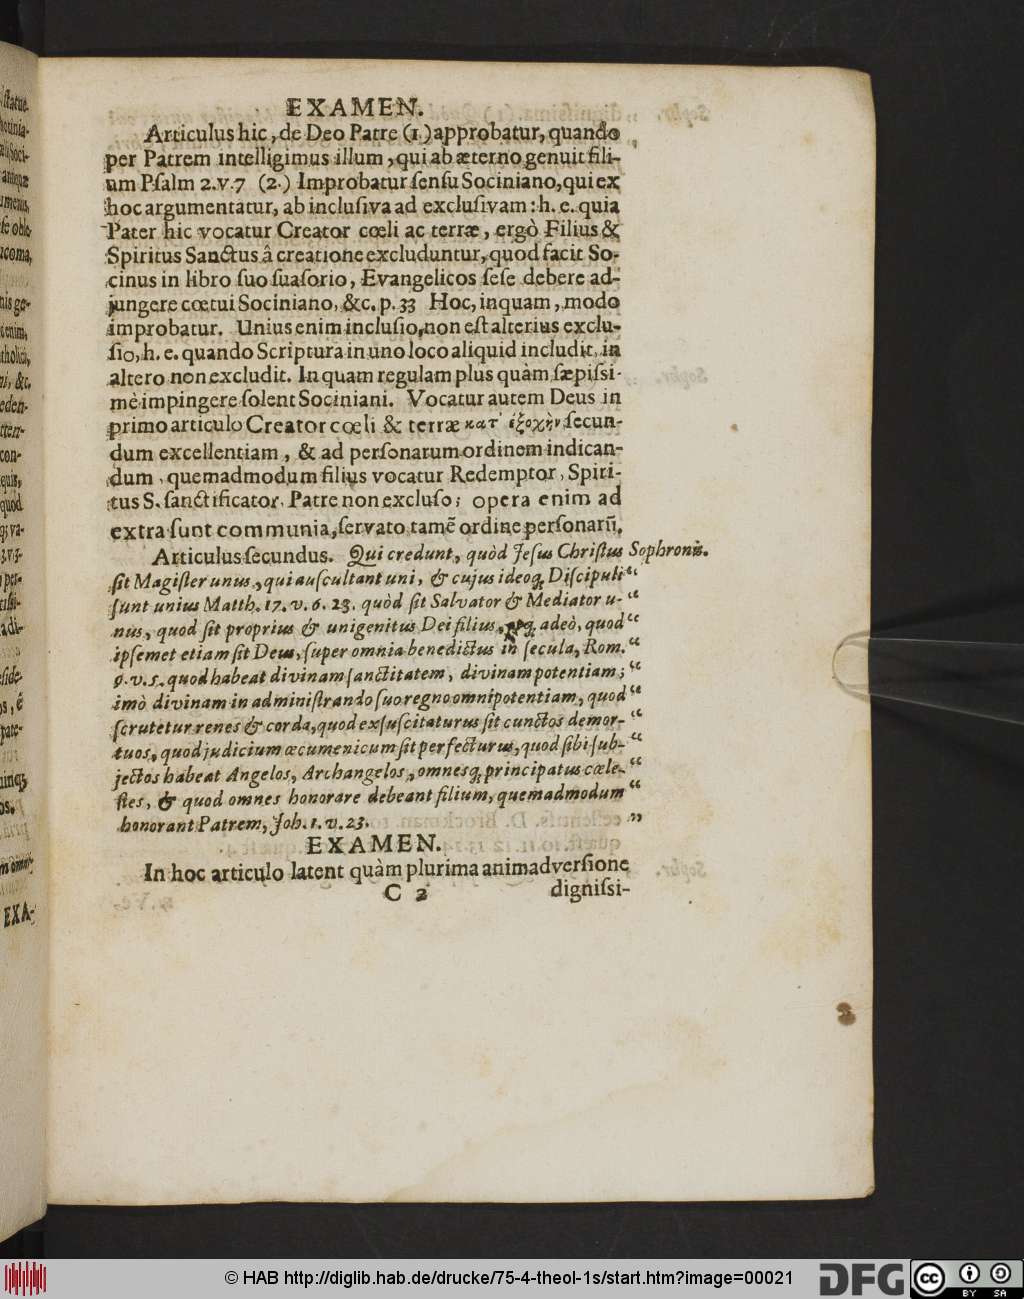 EXAMEN.
Articulus hic, de Deo Patre (1.) approbatur, quando
per Patrem intelligimus illum, qui ab æterno genuit fili-
um Psalm 2.v.7 (2.) Improbatur sensu Sociniano, qui ex
hoc argumentatur, ab inclusiva ad exclusivam: h. e. quia
Pater hic vocatur Creator cœli ac terræ, ergò Filius &
Spiritus Sanctus â creatione excluduntur, quod facit So-
cinus in libro suo suasorio, Evangelicos sese debere ad-
jungere cœtui Sociniano, &c. p. 33 Hoc, inquam, modo
improbatur. Unius enim inclusio, non est alterius exclu-
sio, h. e. quando Scriptura in uno loco aliquid includit, in
altero non excludit. In quam regulam plus quàm sæpissi-
mè impingere solent Sociniani. Vocatur autem Deus in
primo articulo Creator cœli & terræ κατ' ἐξοχὴν secun-
dum excellentiam, & ad personarum ordinem indican-
dum, quemadmodum filius vocatur Redemptor, Spiri-
tus S. sanctificator. Patre non excluso; opera enim ad
extra sunt communia, servato tamẽ ordine personarũ.
Articulus secundus. Qui credunt, quòd Jesus Christus Sophronis.
sit Magister unus, qui auscultant uni, & cujus ideoq; Discipuli “
sunt unius Matth. 17. v. 6. 23. quòd sit Salvator & Mediator u- “
nus, quod sit proprius & unigenitus Dei filius, adeò, quod “
ipsemet etiam sit Deus, super omnia benedictus in secula, Rom. “
9. v. 5. quod habeat divinam sanctitatem, divinam potentiam; “
imò divinam in administrando suo regno omnipotentiam, quod “
scrutetur renes & corda, quod exsuscitaturus sit cunctos demor- “
tuos, quod judicium œcumenicum sit perfecturus, quod sibi sub- “
jectos habeat Angelos, Archangelos, omnesq; principatus cœle- “
stes, & quod omnes honorare debeant filium, quemadmodum “
honorant Patrem, Joh. 1. v. 23. ”
EXAMEN.
In hoc articulo latent quàm plurima animadversione
C 2 dignissi-
EXA-
© HAB http://diglib.hab.de/drucke/75-4-theol-1s/start.htm?image=00021
DFG
cc BY SA